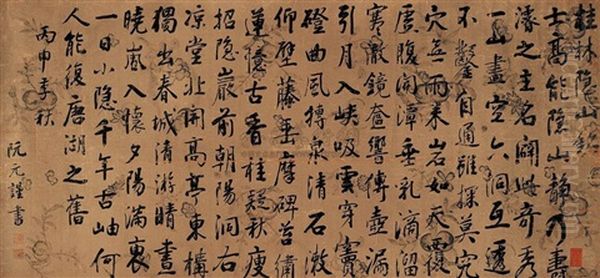 桂林隐山銘
士高能隐山静乃壽
濬之主名闢此奇秀
一山盡空六洞互透
不鑿自通雖探莫究
穴無雨来岩如天覆
虚腹開潭垂乳滴溜
寒澈鏡奩響傳壺漏
引月入峽吸雲穿竇
磴曲風摶泉清石漱
仰壁藤垂摩碑苔繡
蓮憶古香桂疑秋瘦
招隐巖前朝陽洞右
凉堂北開高亭東構
獨出春城清游晴晝
曉嵐入懷夕陽滿褎
一日小隐千年古岫何
人能復唐湖之舊
丙申季秋
阮元謹書